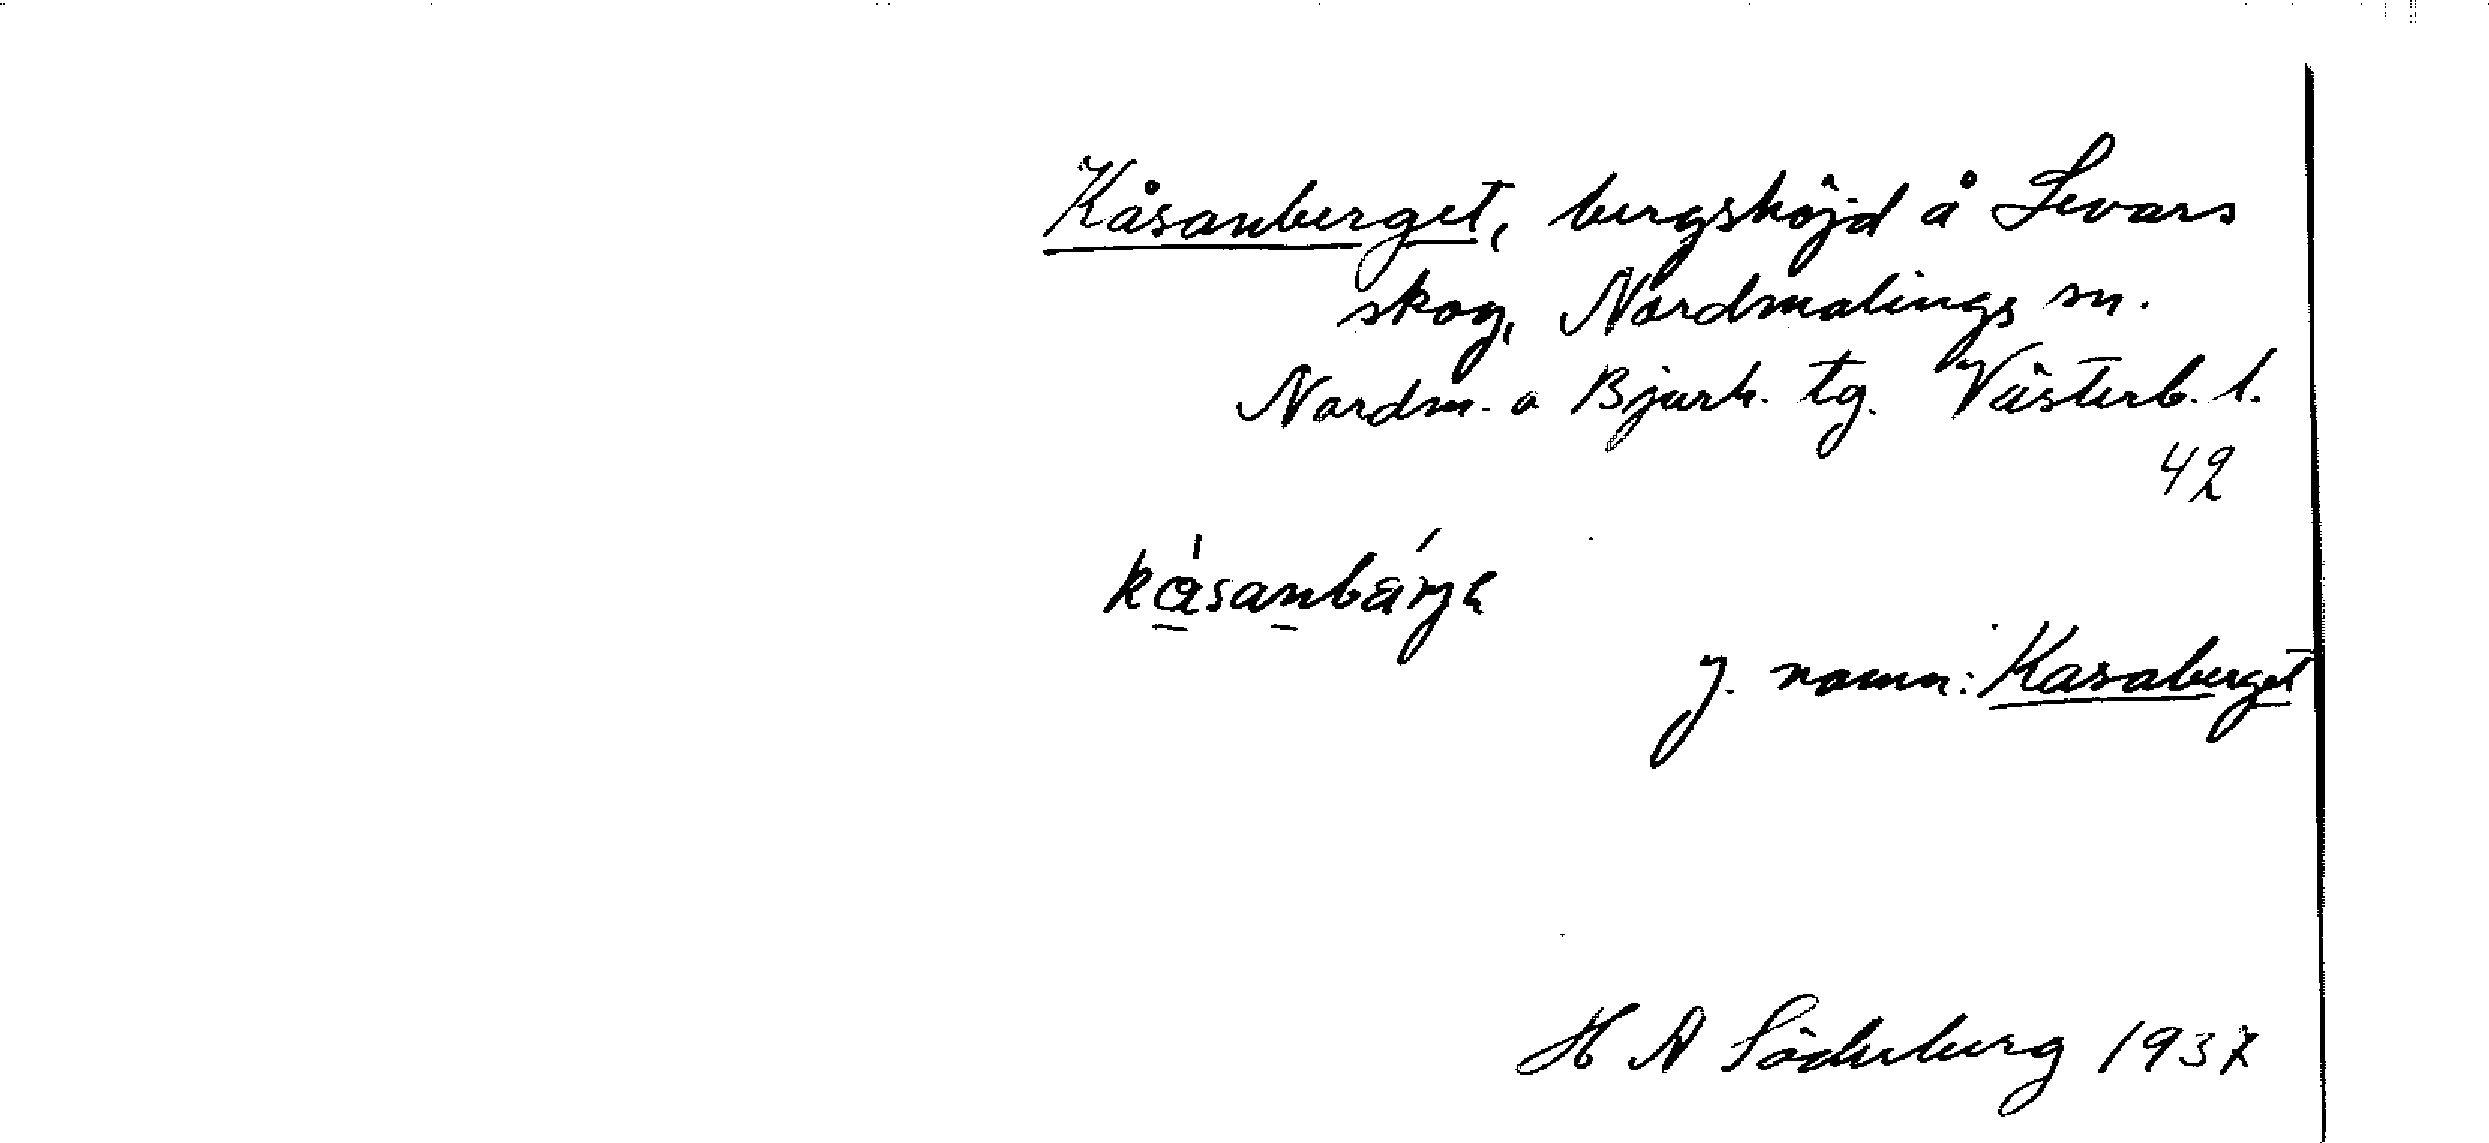 Kåsanberget, bergshöjd å Levars
skog, Nordmalings sn.
Nordm. o Bjurh. tg. Västerb. l.
42
kåsanbárjə
J. namn: Kasaberget
H A Söderberg 1937